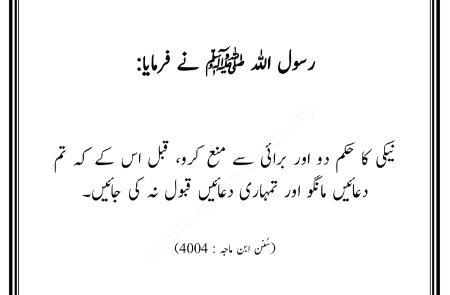 رسول اللہ ﷺ نے فرمایا:
نیکی کا حکم دو اور برائی سے منع کرو، قبل اس کے کہ تم
دعائیں مانگو اور تمہاری دعائیں قبول نہ کی جائیں۔
(سُنن ابن ماجہ : 4004)